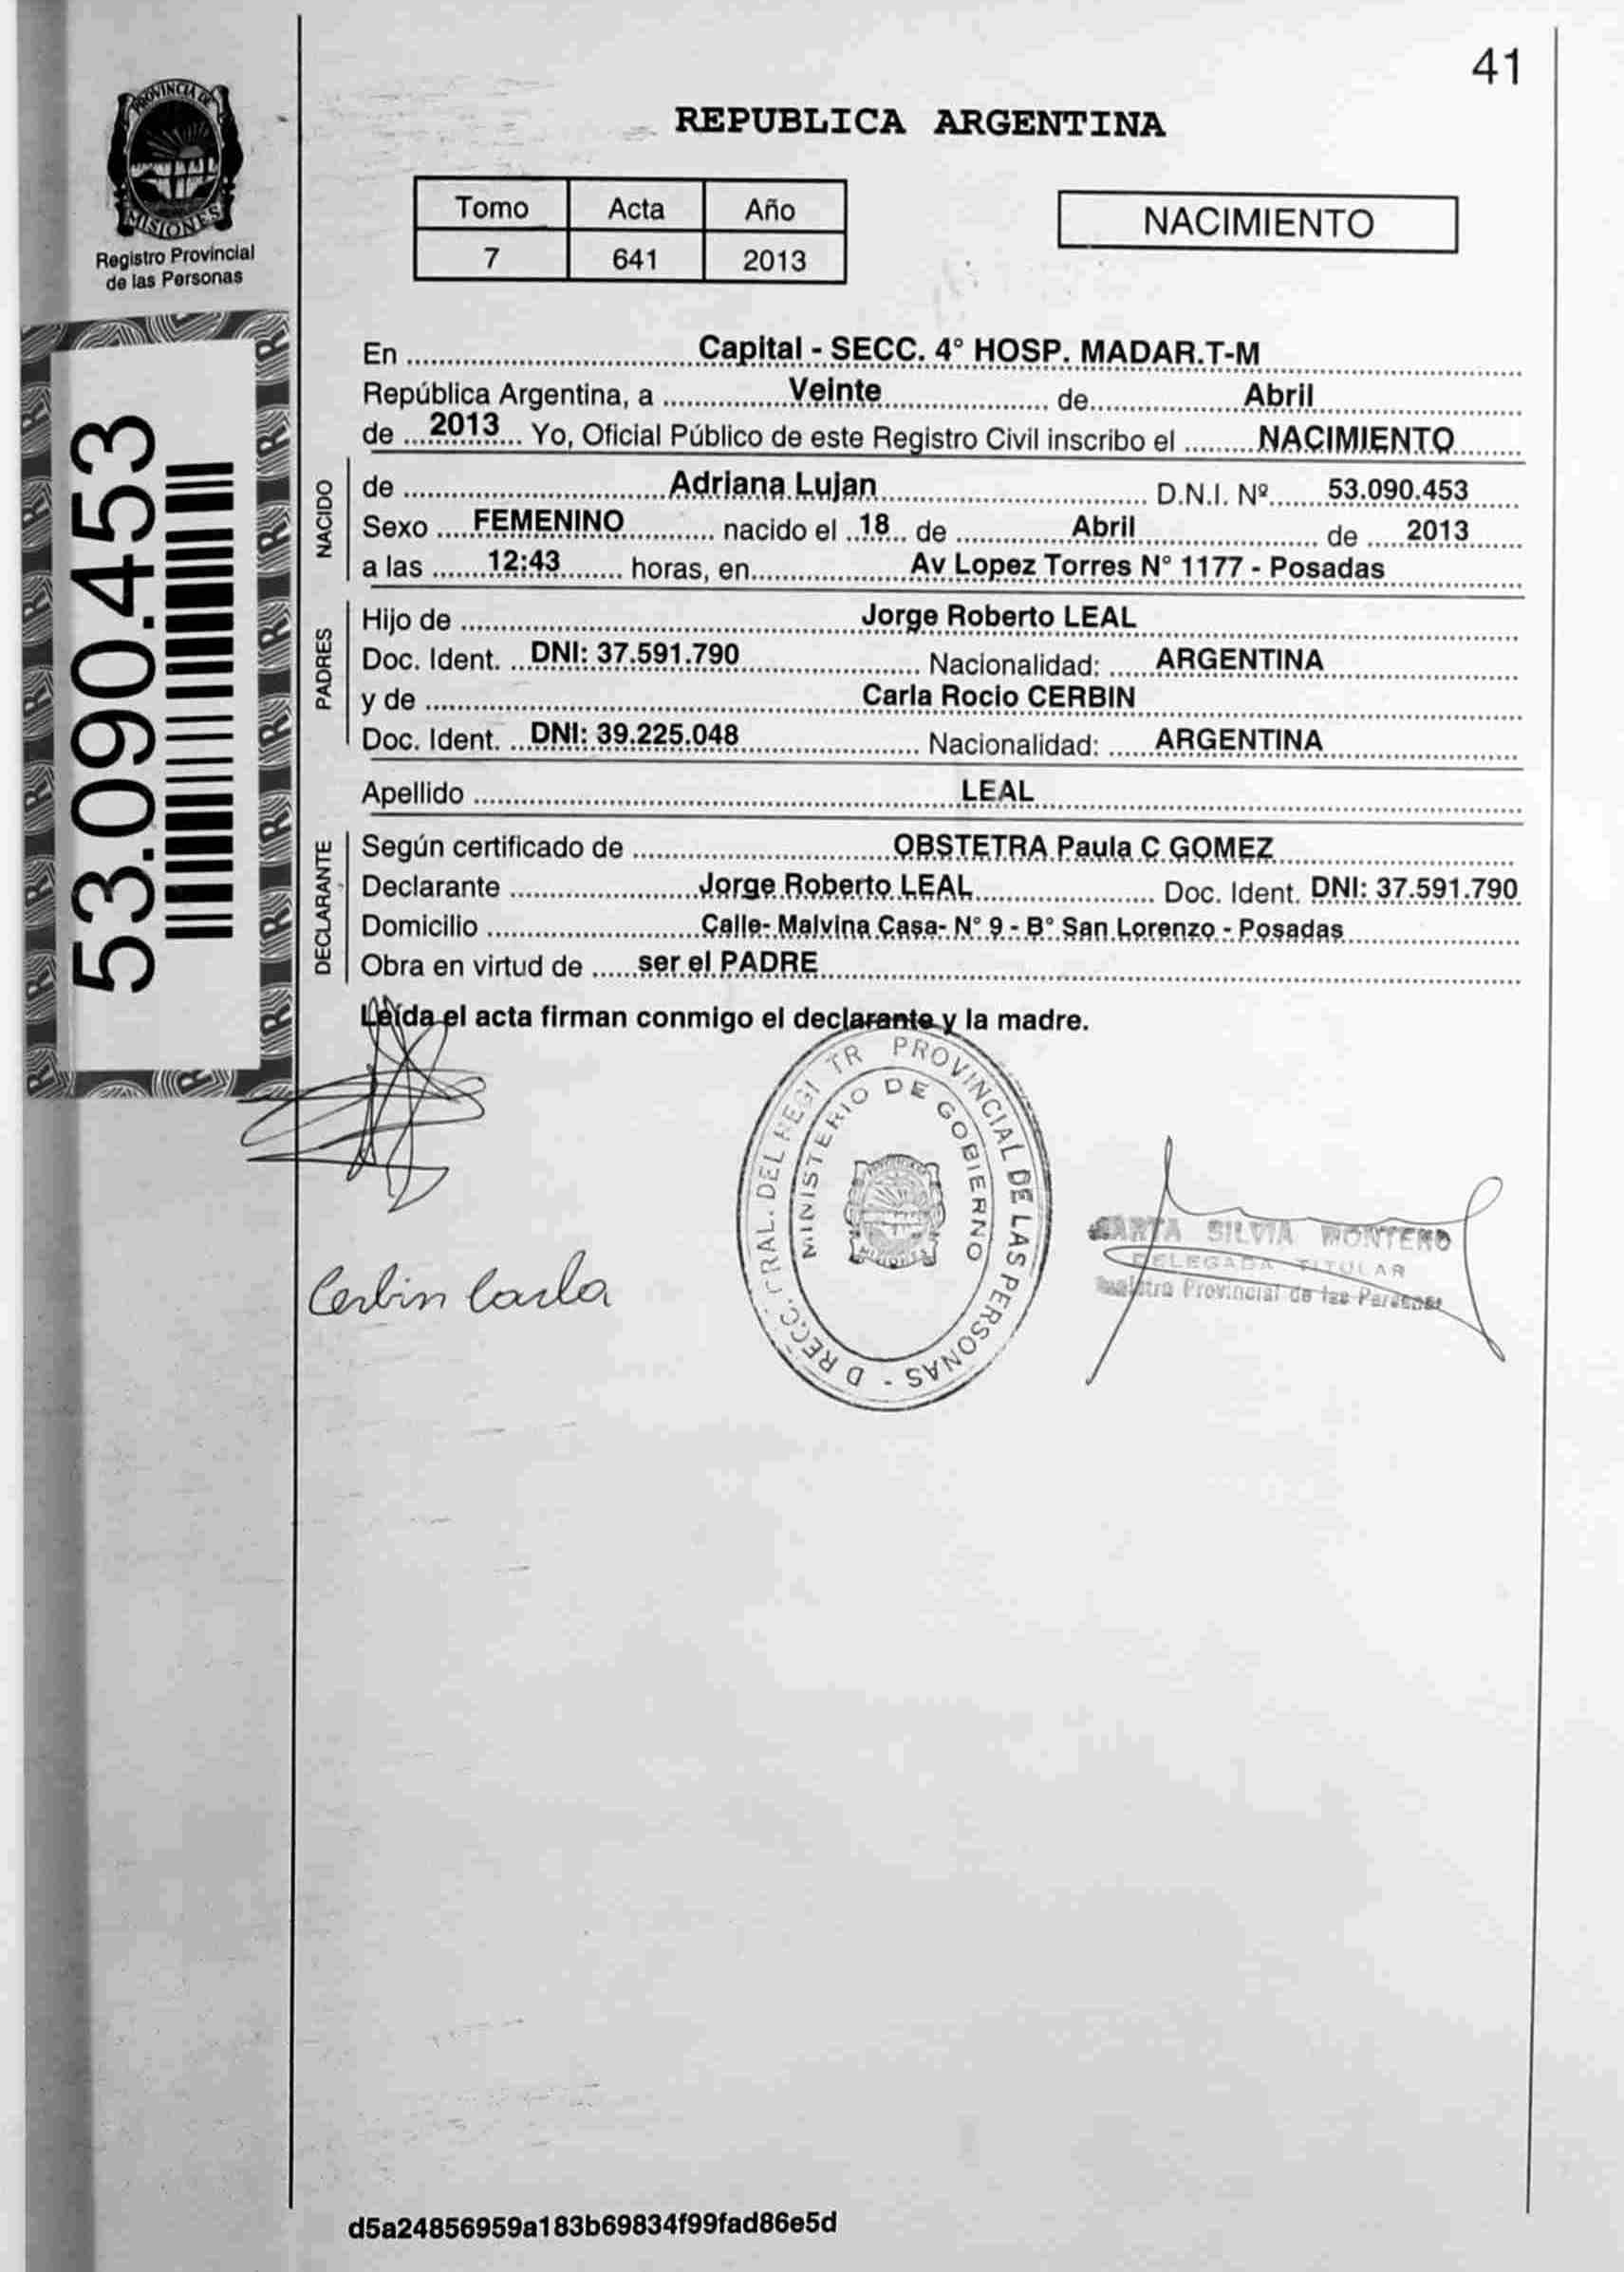 41
PROVINCIA DE
MISIONES
Registro Provincial
de las Personas
REPUBLICA ARGENTINA
Tomo Acta Año
7 641 2013
NACIMIENTO
53.090.453
En Capital - SECC. 4° HOSP. MADAR.T-M
República Argentina, a Veinte de Abril
de 2013 Yo, Oficial Público de este Registro Civil inscribo el NACIMIENTO
NACIDO
de Adriana Lujan D.N.I. Nº 53.090.453
Sexo FEMENINO nacido el 18 de Abril de 2013
a las 12:43 horas, en Av Lopez Torres N° 1177 - Posadas
PADRES
Hijo de Jorge Roberto LEAL
Doc. Ident. DNI: 37.591.790 Nacionalidad: ARGENTINA
y de Carla Rocio CERBIN
Doc. Ident. DNI: 39.225.048 Nacionalidad: ARGENTINA
Apellido LEAL
DECLARANTE
Según certificado de OBSTETRA Paula C GOMEZ
Declarante Jorge Roberto LEAL Doc. Ident. DNI: 37.591.790
Domicilio Calle- Malvina Casa- N° 9 - B° San Lorenzo - Posadas
Obra en virtud de ser el PADRE
Leída el acta firman conmigo el declarante y la madre.
PROVINCIAL DE LAS PERSONAS -
MINISTERIO DE GOBIERNO
MISIONES
Cerbin Carla
SILVIA MONTERO
DELEGADA TITULAR
Registro Provincial de las Personas
d5a24856959a183b69834f99fad86e5d